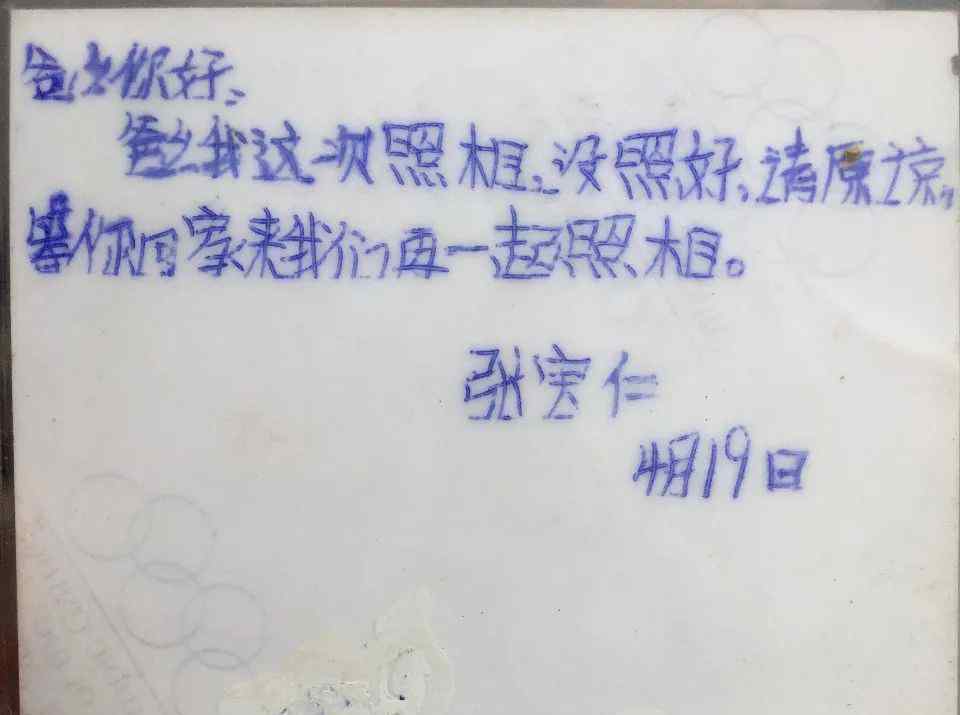 爸爸你好、
爸爸我这一次照相、没照好、请原谅。
等你回家来我们再一起照相。
张宝仁
4月19日